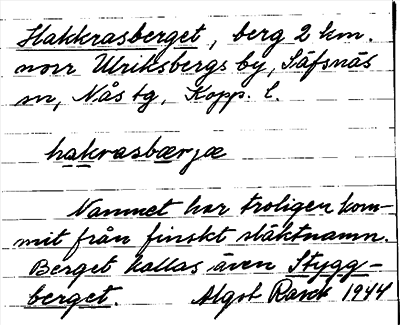 Hakkrasberget, berg 2 km.
norr Ulriksbergs by, Säfsnäs
sn, Nås tg, Kopp. l.
hakrasbærjæ
Namnet har troligen kom-
mit från finskt släktnamn.
Berget kallas även Stygg-
berget. Algot Rank 1944